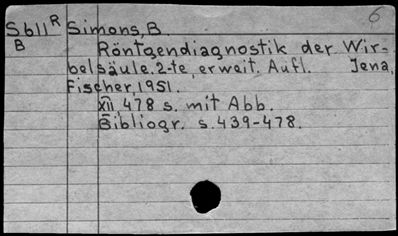 6
S611 R Simons, B.
B Röntgendiagnostik der Wir-
belsäule. 2-te, erweit. Aufl. Jena,
Fischer, 1951.
XII 478 s. mit Abb.
Bibliogr. s. 439-478.